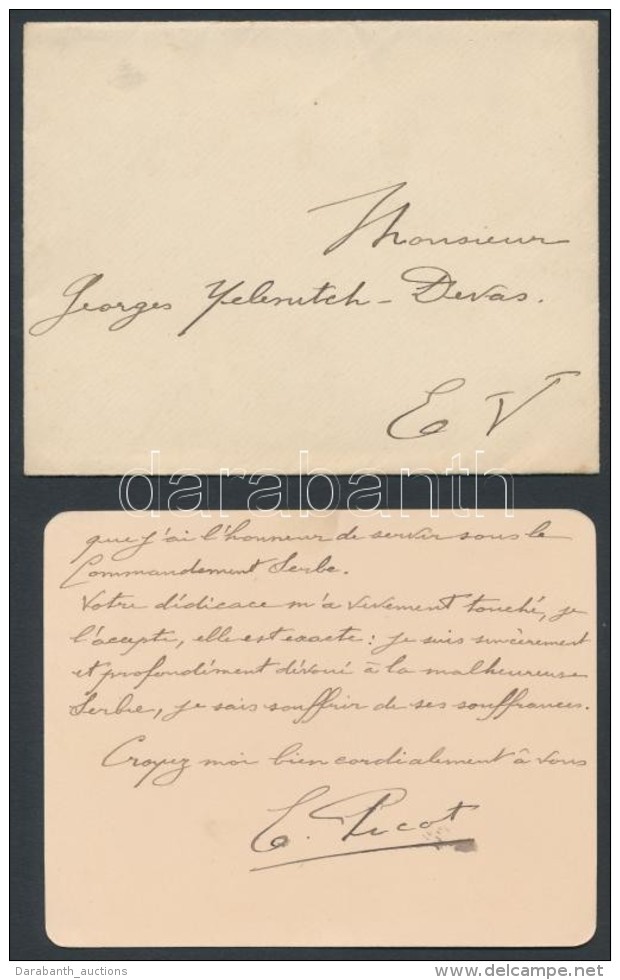 Monsieur
Georges Yelenitch - Devas.
E V
darabanth
que j'ai l'honneur de servir sous le
Commandement Serbe.
Votre dédicace m'a vivement touché, je
l'accepte, elle est exacte : je suis sincèrement
et profondément dévoué à la malheureuse
Serbie, je sais souffrir de ses souffrances.
Croyez moi bien cordialement à vous
E. Picot
Darabanth_auctions
www.delcampe.net